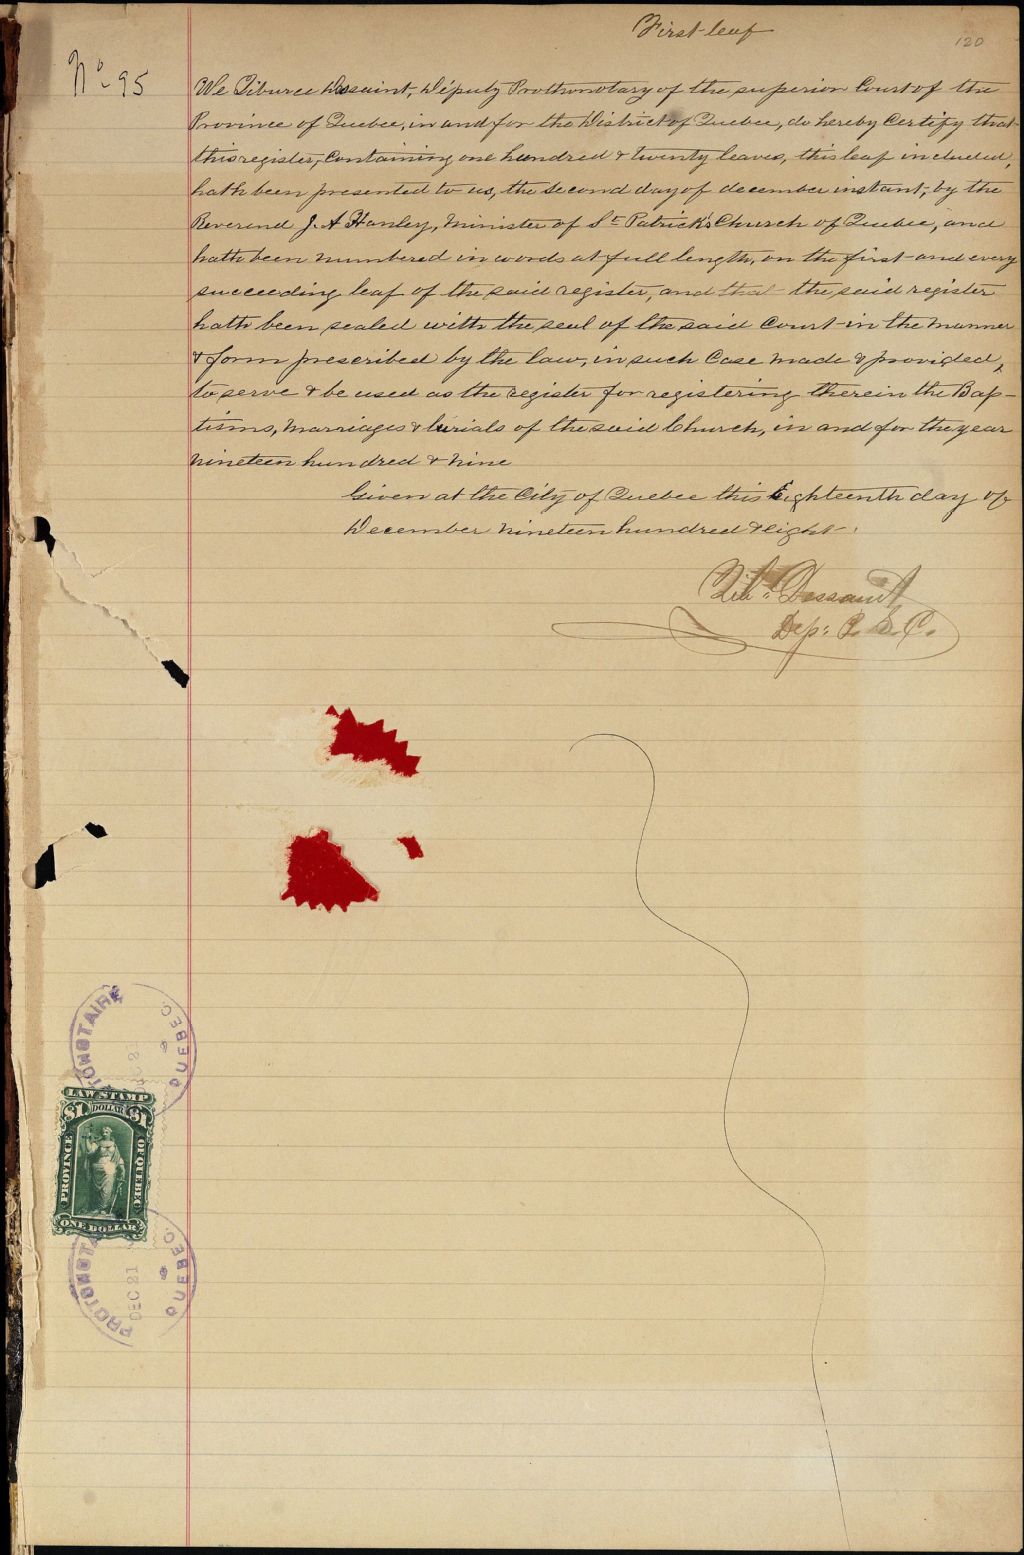 First leaf
120
No 95
We Tiburce Dessaint, Députy Prothonotary of the superior Court of the
Province of Quebec, in and for the District of Quebec, do hereby Certify that
this register, Containing one hundred & twenty leaves, this leaf included,
hath been presented to us, the second day of december instant, by the
Reverend J. A Hanley, Minister of St Patrick's Church of Quebec, and
hath been numbered in words at full length, on the first and every
succeeding leaf of the said register, and that the said register
hath been sealed with the seal of the said Court in the manner
& form prescribed by the law, in such Case made & provided,
to serve & be used as the register for registering therein the Bap-
tisms, Marriages & burials of the said Church, in and for the year
nineteen hundred & nine
Given at the City of Quebec this Eighteenth day of
December nineteen hundred & eight.
Tib: Dessaint
Dep: P. S. C.
PROTONOTAIRE
DEC 21
QUEBEC
LAW STAMP
$1 DOLLAR $1
PROVINCE OF QUEBEC
ONE DOLLAR
PROTONOTA
DEC 21
QUEBEC